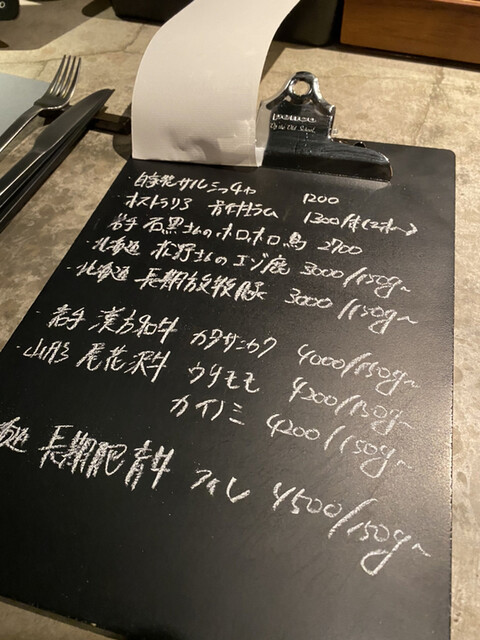 ・自家製サルシッチャ 1200
・オーストラリア 骨付ラム 1300/本(2本〜)
岩手 石黒さんのホロホロ鳥 2700
・北海道 松野さんのエゾ鹿 3000/150g〜
・北海道 長期放牧豚 3000/150g〜
・岩手 漢方和牛 カタサンカク 4000/150g〜
・山形 尾花沢牛 ウチモモ 4200/150g〜
カイノミ 4200/150g〜
長期肥育牛 フィレ 4500/150g〜